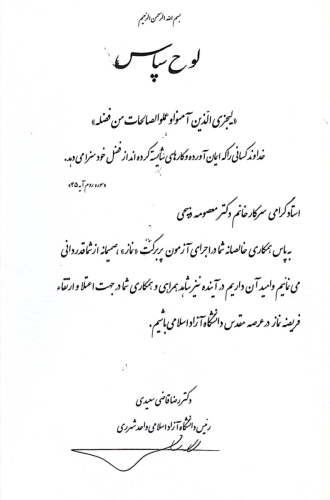 بسم الله الرحمن الرحیم
لوح سپاس
«لیجزی الذین آمنوا و عملوا الصالحات من فضله»
خداوند کسانی را که ایمان آورده و کارهای شایسته کرده اند از فضل خود سزا می دهد.
«سوره روم آیه ۴۵»
استاد گرامی سرکار خانم دکتر معصومه ذبیحی
به پاس همکاری خالصانه شما در اجرای آزمون پربرکت «نماز»، صمیمانه از شما قدردانی
می نمائیم و امید آن داریم در آینده نیز شاهد همراهی و همکاری شما در جهت اعتلا و ارتقاء
فریضه نماز در عرصه مقدس دانشگاه آزاد اسلامی باشیم.
دکتر رضا قاضی سعیدی
رئیس دانشگاه آزاد اسلامی واحد شهرری